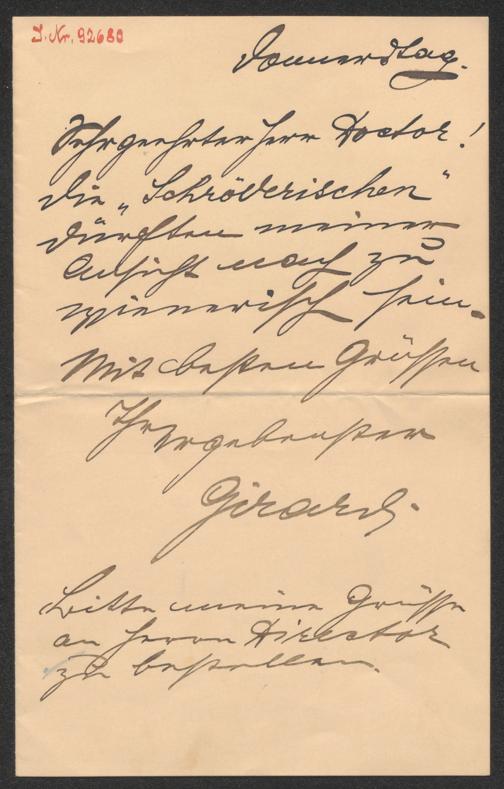 I.Nr. 92680
Donnerstag.
Sehrgeehrter Herr Doctor!
Die „Schröderischen“
dürften meiner
Ansicht nach zu
wienerisch sein.
Mit besten Grüssen
Ihr ergebenster
Girardi.
Bitte meine Grüsse
an Herrn Director
zu bestellen.